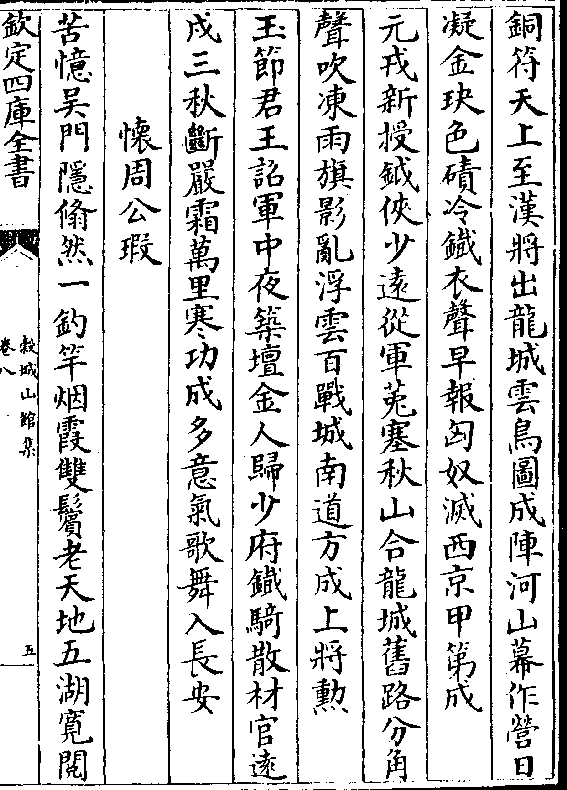 銅符天上至漢將出龍城雲鳥圖成陣河山幕作營日
凝金玦色磧冷鐵衣聲早報匈奴滅西京甲第成
元戎新授鉞俠少遠從軍菟塞秋山合龍城舊路分角
聲吹凍雨旗影亂浮雲百戰城南道方成上將勲
玉節君王詔軍中夜築壇金人歸少府鐵騎散材官遠
戍三秋斷嚴霜萬里寒功成多意氣歌舞入長安
懷周公瑕
苦憶吳門隱翛然一釣竿烟霞雙鬢老天地五湖寛閱
欽定四庫全書
穀城山館集
卷八
五